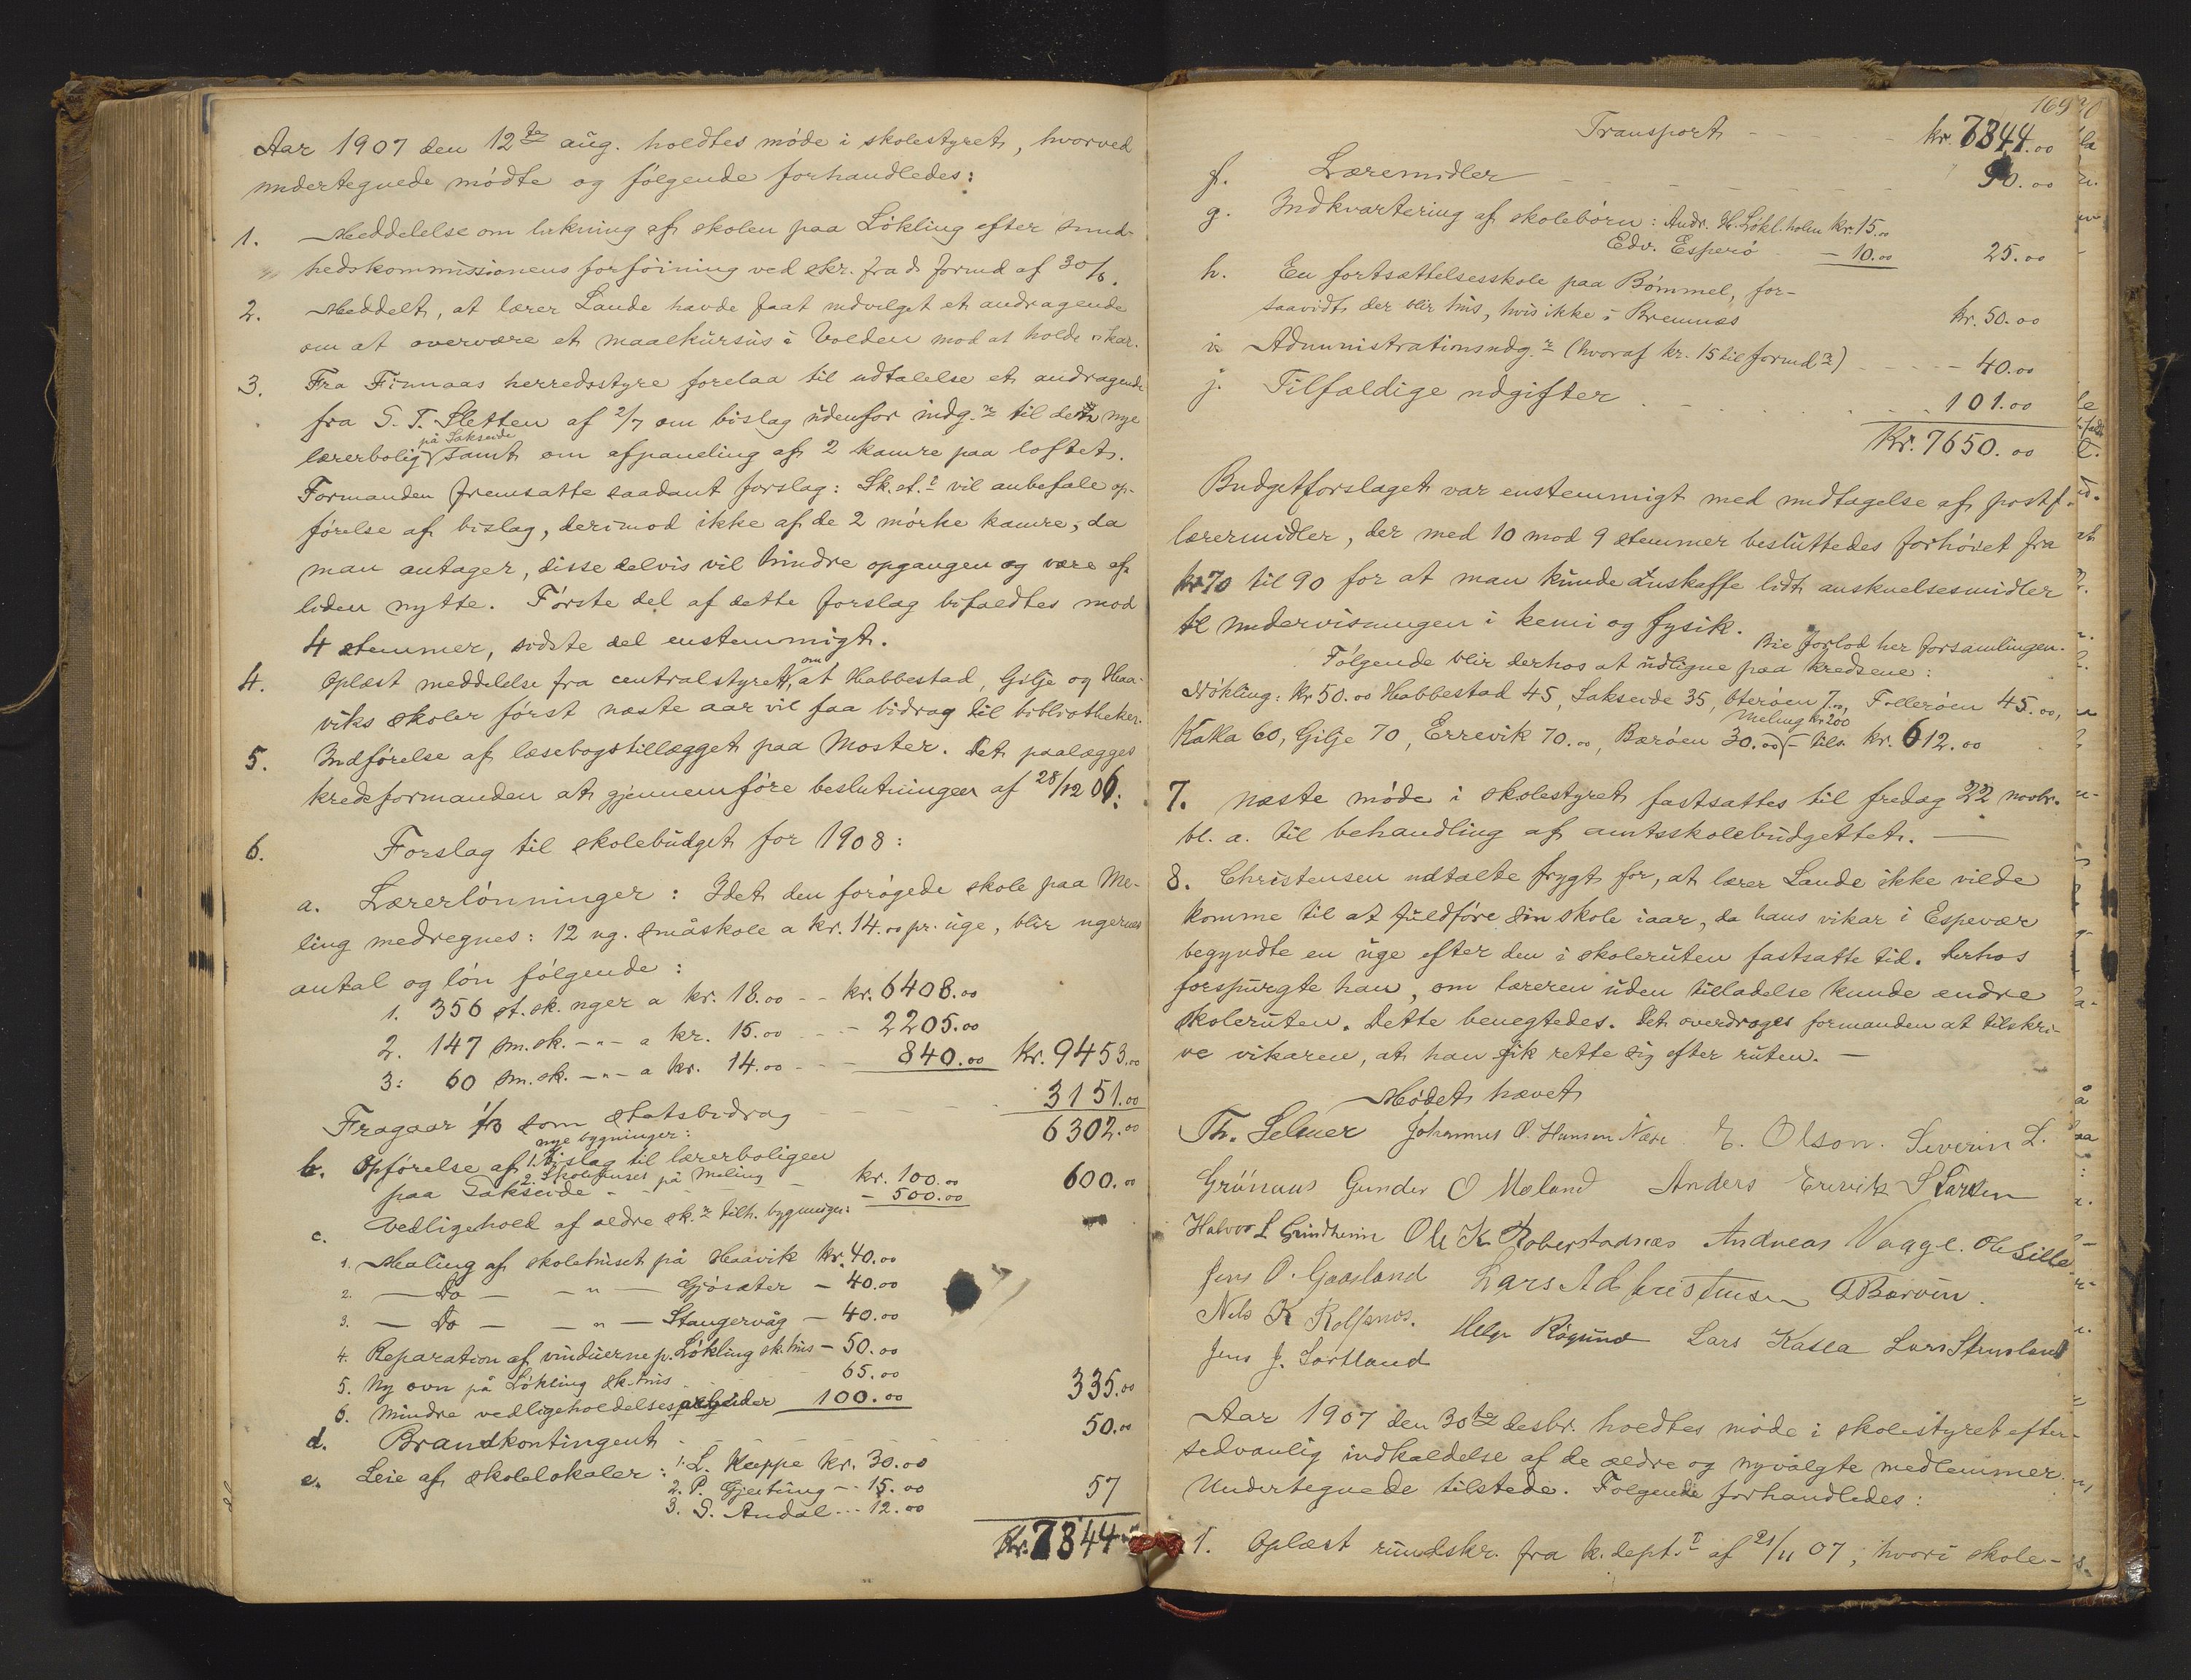 Aar 1907 den 12te aug. holdtes møde i skolestyret, hvorved
undertegnede mødte og følgende forhandledes:
1. Meddelelse om lukning af skolen paa Løkling efter sund-
hedskommissionens forføining ved skr. fra d. formd af 30/6.
2. Meddelt, at lærer Lande havde faat indvilget et andragende
om at overvære et maalkursus i Volden mod at holde vikar.
3. Fra Finnaas herredsstyre forelaa til udtalelse et andragende
fra S. T. Sletten af 2/7 om bislag udenfor indg. til den nye
på Sakseide
lærerbolig samt om afpaneling af 2 kamre paa loftet.
Formanden fremsatte saadant forslag: Sk.st. vil anbefale op-
førelse af bislag, derimod ikke af de 2 mørke kamre, da
man antager, disse delvis vil hindre opgangen og være af
liden nytte. Første del af dette forslag bifaldtes mod
4 stemmer, sidste del enstemmigt.
4. Oplæst meddelelse fra centralstyret, om at Habbestad, Gilje og Haa-
viks skoler først næste aar vil faa bidrag til bibliotheker.
5. Indførelse af læsebogstillægget paa Moster. Det paalægges
kredsformanden at gjennemføre beslutningen af 28/12 06.
6. Forslag til skolebudget for 1908:
a. Lærerlønninger: Idet den forøgede skole paa Me-
ling medregnes: 12 ug. småskole a kr. 14.00 pr. uge, blir ugernes
antal og løn følgende:
1. 356 st. sk. uger a kr. 18.00 - - kr. 6408.00
2. 147 sm. sk. -"- a kr. 15.00 - - 2205.00
3: 60 sm. sk. -"- a kr. 14.00 - - 840.00 Kr. 9453.00
Fragaar 1/3 som statsbidrag 3151.00
6302.00
nye bygninger:
b. Opførelse af 1. bislag til lærerboligen
paa Sakseide - - kr. 100.00 600.00
2. Skolehuset på Meling - 500.00
c. Vedligehold af ældre sk. tilh. bygninger:
1. Maling af skolehuset på Haavik kr. 40.00
2. - Do - - " - Gjøsæter - 40.00
3. - Do - - " - Stangervåg - 40.00
4. Reparation af vinduerne p. Løkling sk.hus - 50.00
5. Ny ovn på Løkling sk.hus 65.00
6. Mindre vedligeholdelsesarbeider 100.00 335.00
d. Brandkontingent 50.00
e. Leie af skolelokaler: 1. L. Kuppe kr. 30.00
2. P. Gjeitung - 15.00 57
3. S. Andal - 12.00
Kr. 7344
169
Transport kr. 7344.00
f. Læremidler 90.00
g. Indkvartering af skolebørn: Andr. H. Løkl.holm kr. 15.00
Edv. Esperø - 10.00 25.00
h. En fortsættelsesskole paa Bømmel, for-
saavidt der blir hus, hvis ikke i Bremnæs kr. 50.00
i. Administrationsudg. (hvoraf kr. 15 til formd) - - 40.00
j. Tilfældige udgifter 101.00
Kr. 7650.00
Budgetforslaget var enstemmigt med undtagelse af post f.
læremidler, der med 10 mod 9 stemmer besluttedes forhøiet fra
kr 70 til 90 for at man kunde anskaffe lidt anskuelsesmidler
til undervisningen i kemi og fysik. Bie forlod her forsamlingen.
Følgende blir derhos at udligne paa kredsene:
Løkling: kr 50.00 Habbestad 45, Sakseide 35, Oterøen 7.00, Follerøen 45.00,
Meling kr 200
Kalla 60, Gilje 70, Errevik 70.00, Barøen 30.00 - tils. kr. 612.00
7. Næste møde i skolestyret fastsattes til fredag 22 novbr.
bl. a. til behandling af amtsskolebudgettet. -
8. Christensen udtalte frygt for, at lærer Lande ikke vilde
komme til at fuldføre sin skole iaar, da hans vikar i Espevær
begyndte en uge efter den i skoleruten fastsatte tid. Derhos
forspurgte han, om læreren uden tilladelse kunde ændre
skoleruten. Dette benegtedes. Det overdroges formanden at tilskri-
ve vikaren, at han fik rette sig efter ruten. -
Mødet hævet
Th. Selmer Johannes O. Hansen Nære. E. Olson. Severin L.
Grønnus Gunder O Mæland Anders Errevik S Larsen
Halvor L Grindheim Ole K Roberstadnæs Andreas Vaage. Ole Lille
Jens O. Gaasland Lars Ad Kristensen Barvin.
Nels K Rolfsnes. Helge Røgund Lars Kalla Lars Strusland
Jens J. Sortland
Aar 1907 den 30te desbr. holdtes møde i skolestyret efter
sedvanlig indkaldelse af de ældre og nyvalgte medlemmer.
Undertegnede tilstede. Følgende forhandledes:
1. Oplæst rundskr. fra k. dept. af 21/11 07, hvori skole-